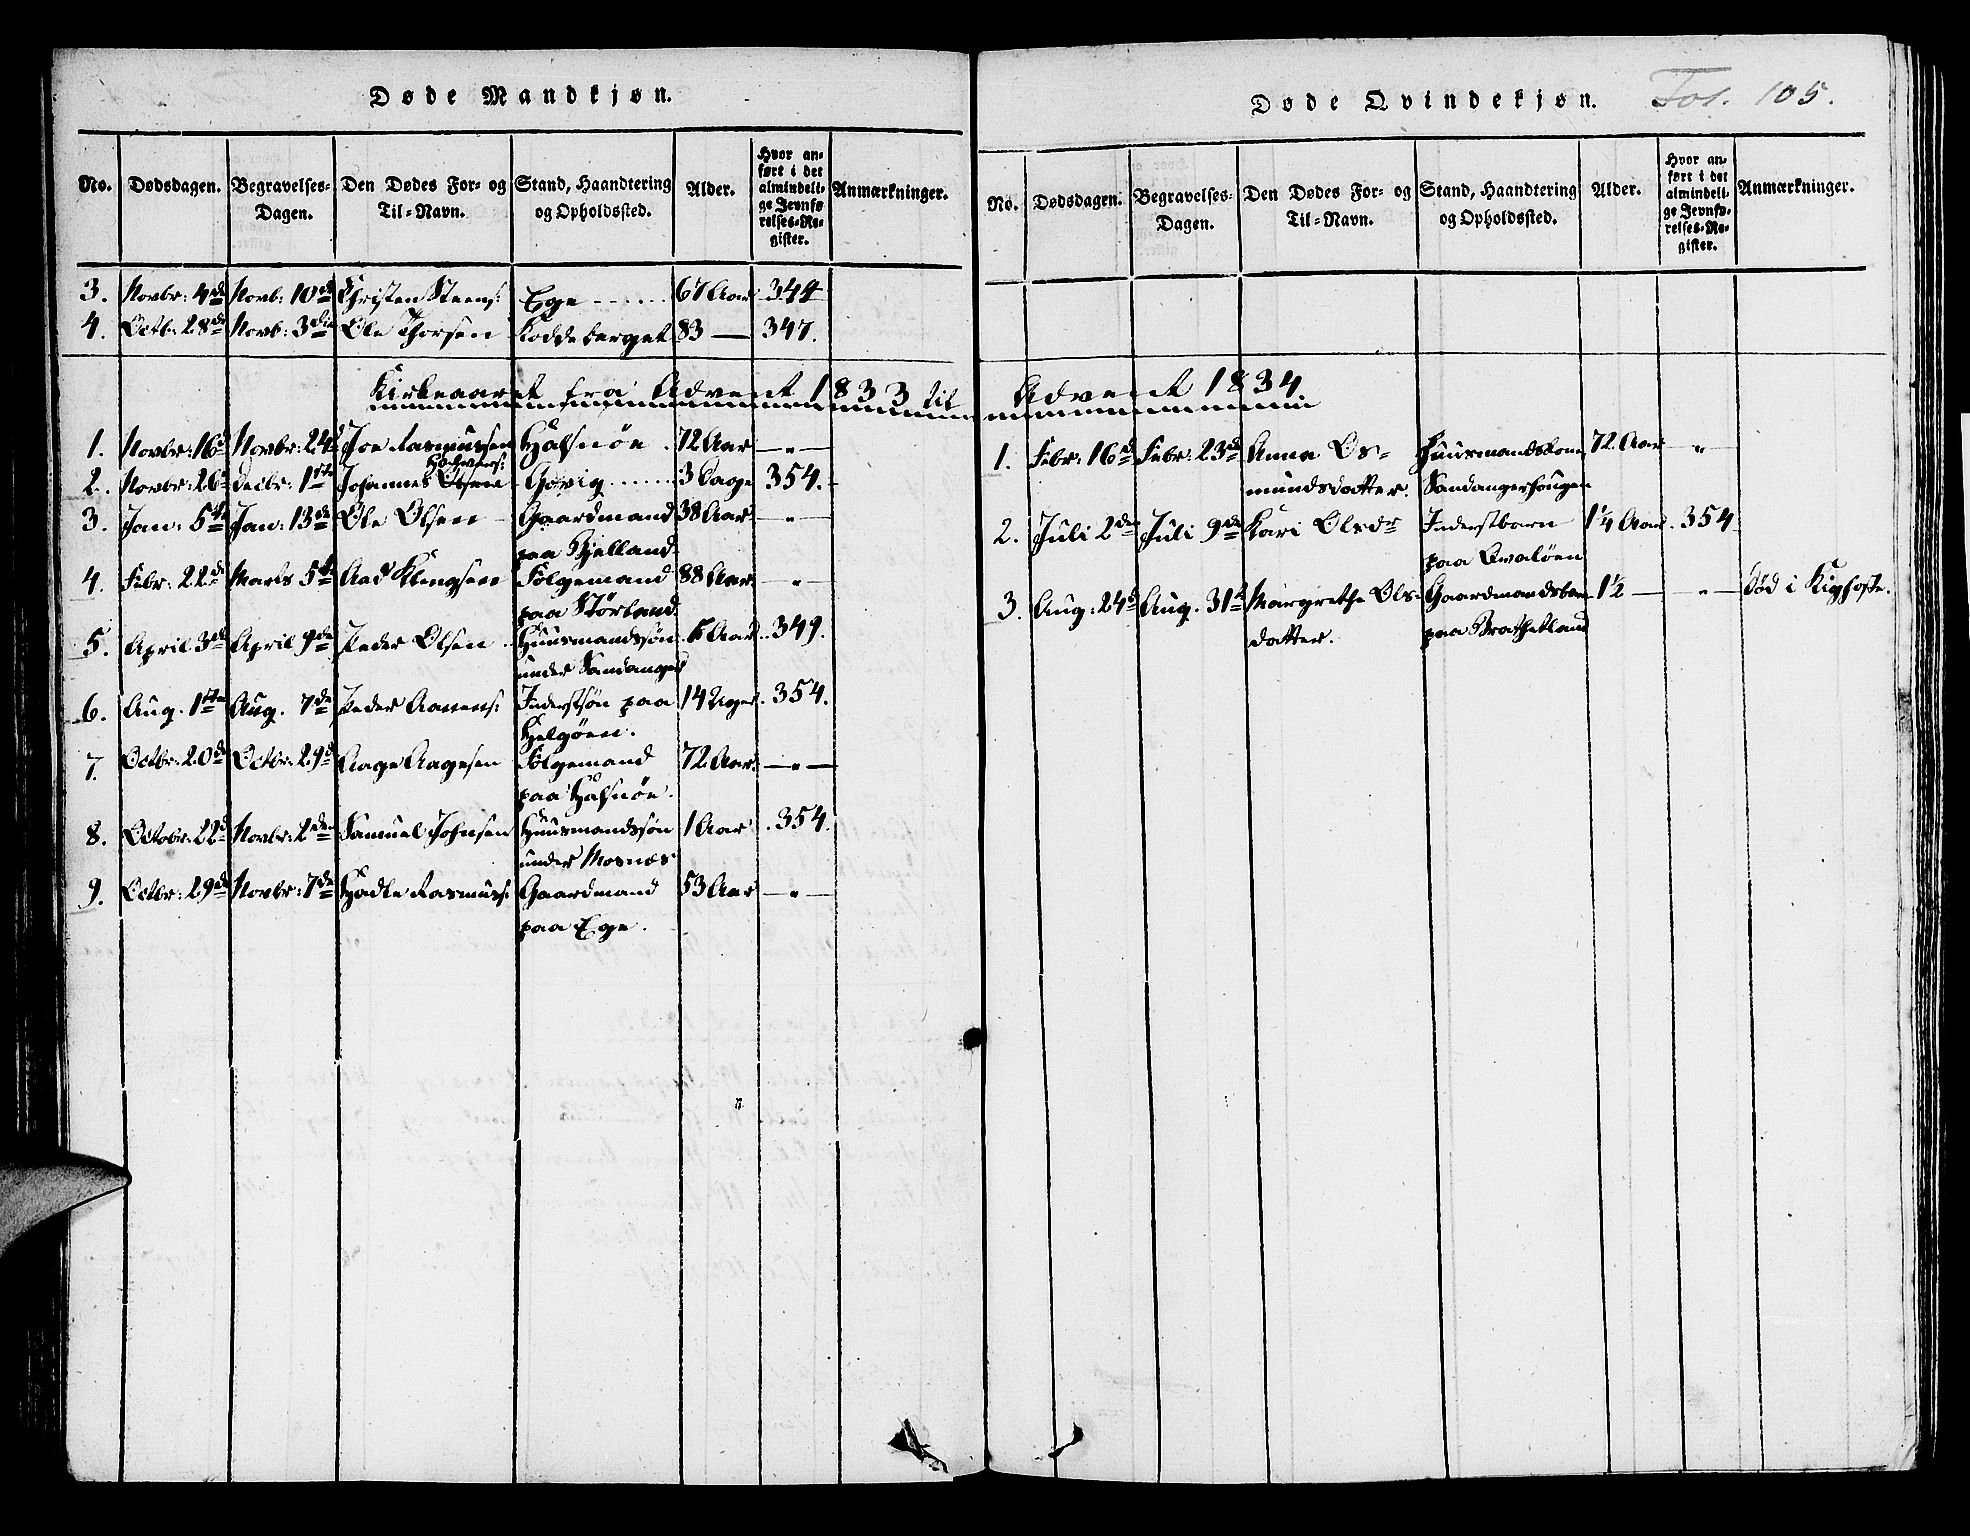 Døde Mandkjøn.
No. Dødsdagen. Begravelses-Dagen. Den Dødes For- og Til-Navn. Stand, Haandtering og Opholdssted. Alder. Hvor anført i det almindelige Jevnførelses-Register. Anmærkninger.
3. Novbr: 4de Novb: 10de Christen Steens: Ege 67 Aar 344
4. Octb: 28de Novb: 3die Ole Thorsen Koddeberget 83 — 347.
Kirkeaaret fra Advent 1833 til
1. Novbr: 16d Novbr: 24d Joe Rasmussen Hafnøe. 72 Aar — „ —
2. Novbr: 26 Decbr: 1ste Johannes Gjøvig 3 Dage 354.
3. Jan: 5te Jan: 13de Ole Olsen Gaardmand 38 Aar — „ —
paa Hjelland
4. Febr: 22de Marts 5te Aad Klengsen Følgemand 88 Aar — „ —
paa Størland
5. April 3die April 9de Peder Olsen Huusmandssøn 6 Aar 349.
under Sandanger
6. Aug. 1ste Aug. 7de Peder Aanens: Inderstsøn paa 14 Uger 354.
Helgøen.
7. Octbr: 20de Octbr: 29d Aage Aagesen Følgemand 72 Aar. — „ —
paa Hafnøe.
8. Octobr: 22d Novbr: 2den Samuel Johnsen Huusmandssøn 1 Aar 354.
under Mosnæs
9. Octbr: 29de Novbr: 7de Hadle Rasmuss: Gaardmand 53 Aar — „ —
paa Ege.
Døde Qvindekjøn. Fol. 105.
No. Dødsdagen. Begravelses-Dagen. Den Dødes For- og Til-Navn. Stand, Haandtering og Opholdssted. Alder. Hvor anført i det almindelige Jevnførelses-Register. Anmærkninger.
Advent 1834
1. Febr: 16d Febr: 23d Anna Os- Huusmandskone 72 Aar „
mundsdatter. Sandangerhougen
2. Juli 2den Juli 9de Kari Olsdr Inderstbarn 1¼ Aar. 354
paa Qvaløen
3. Aug: 24d Aug. 31te Margrethe Ols- Gaardmandsbarn 1½ — „ — død i Kighoste.
datter. paa Brathetland